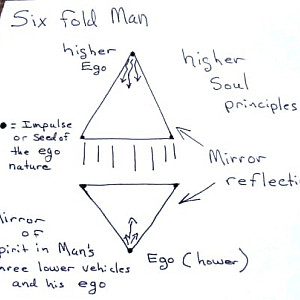 Six Fold Man
higher
Ego
higher
Soul
principles
• = Impulse
or Seed of
the ego
nature
Mirror
reflecti
Mirror
of
pirit in Man's
hree lower vehicles
and his ego
Ego (hower)